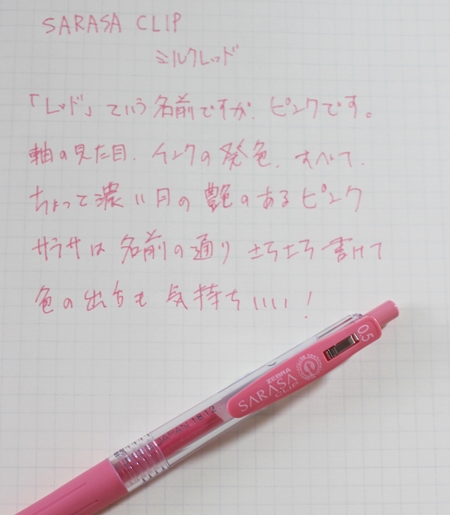 SARASA CLIP
ミルクレッド
「レッド」ていう名前ですが、ピンクです。
軸の見た目、インクの発色、すべて、
ちょっと濃い目の艶のあるピンク
サラサは名前の通りさらさら書けて
色の出方も気持ちいい!
0.5
ZEBRA
SARASA
CLIP